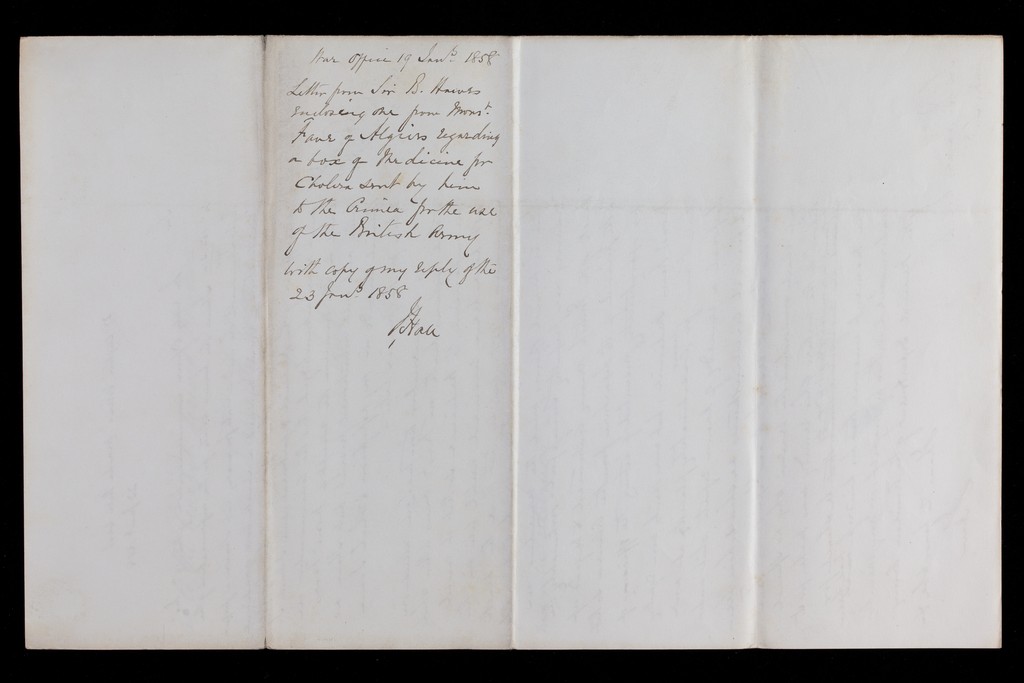 War Office 19 Jany. 1858
Letter from Sir B. Hawes
enclosing one from Monsr.
of Algiers regarding
a box of Medicine for
Cholera sent by him
to the Crimea for the use
of the British Army
with copy of my reply of the
23 Jany. 1858
J Hall